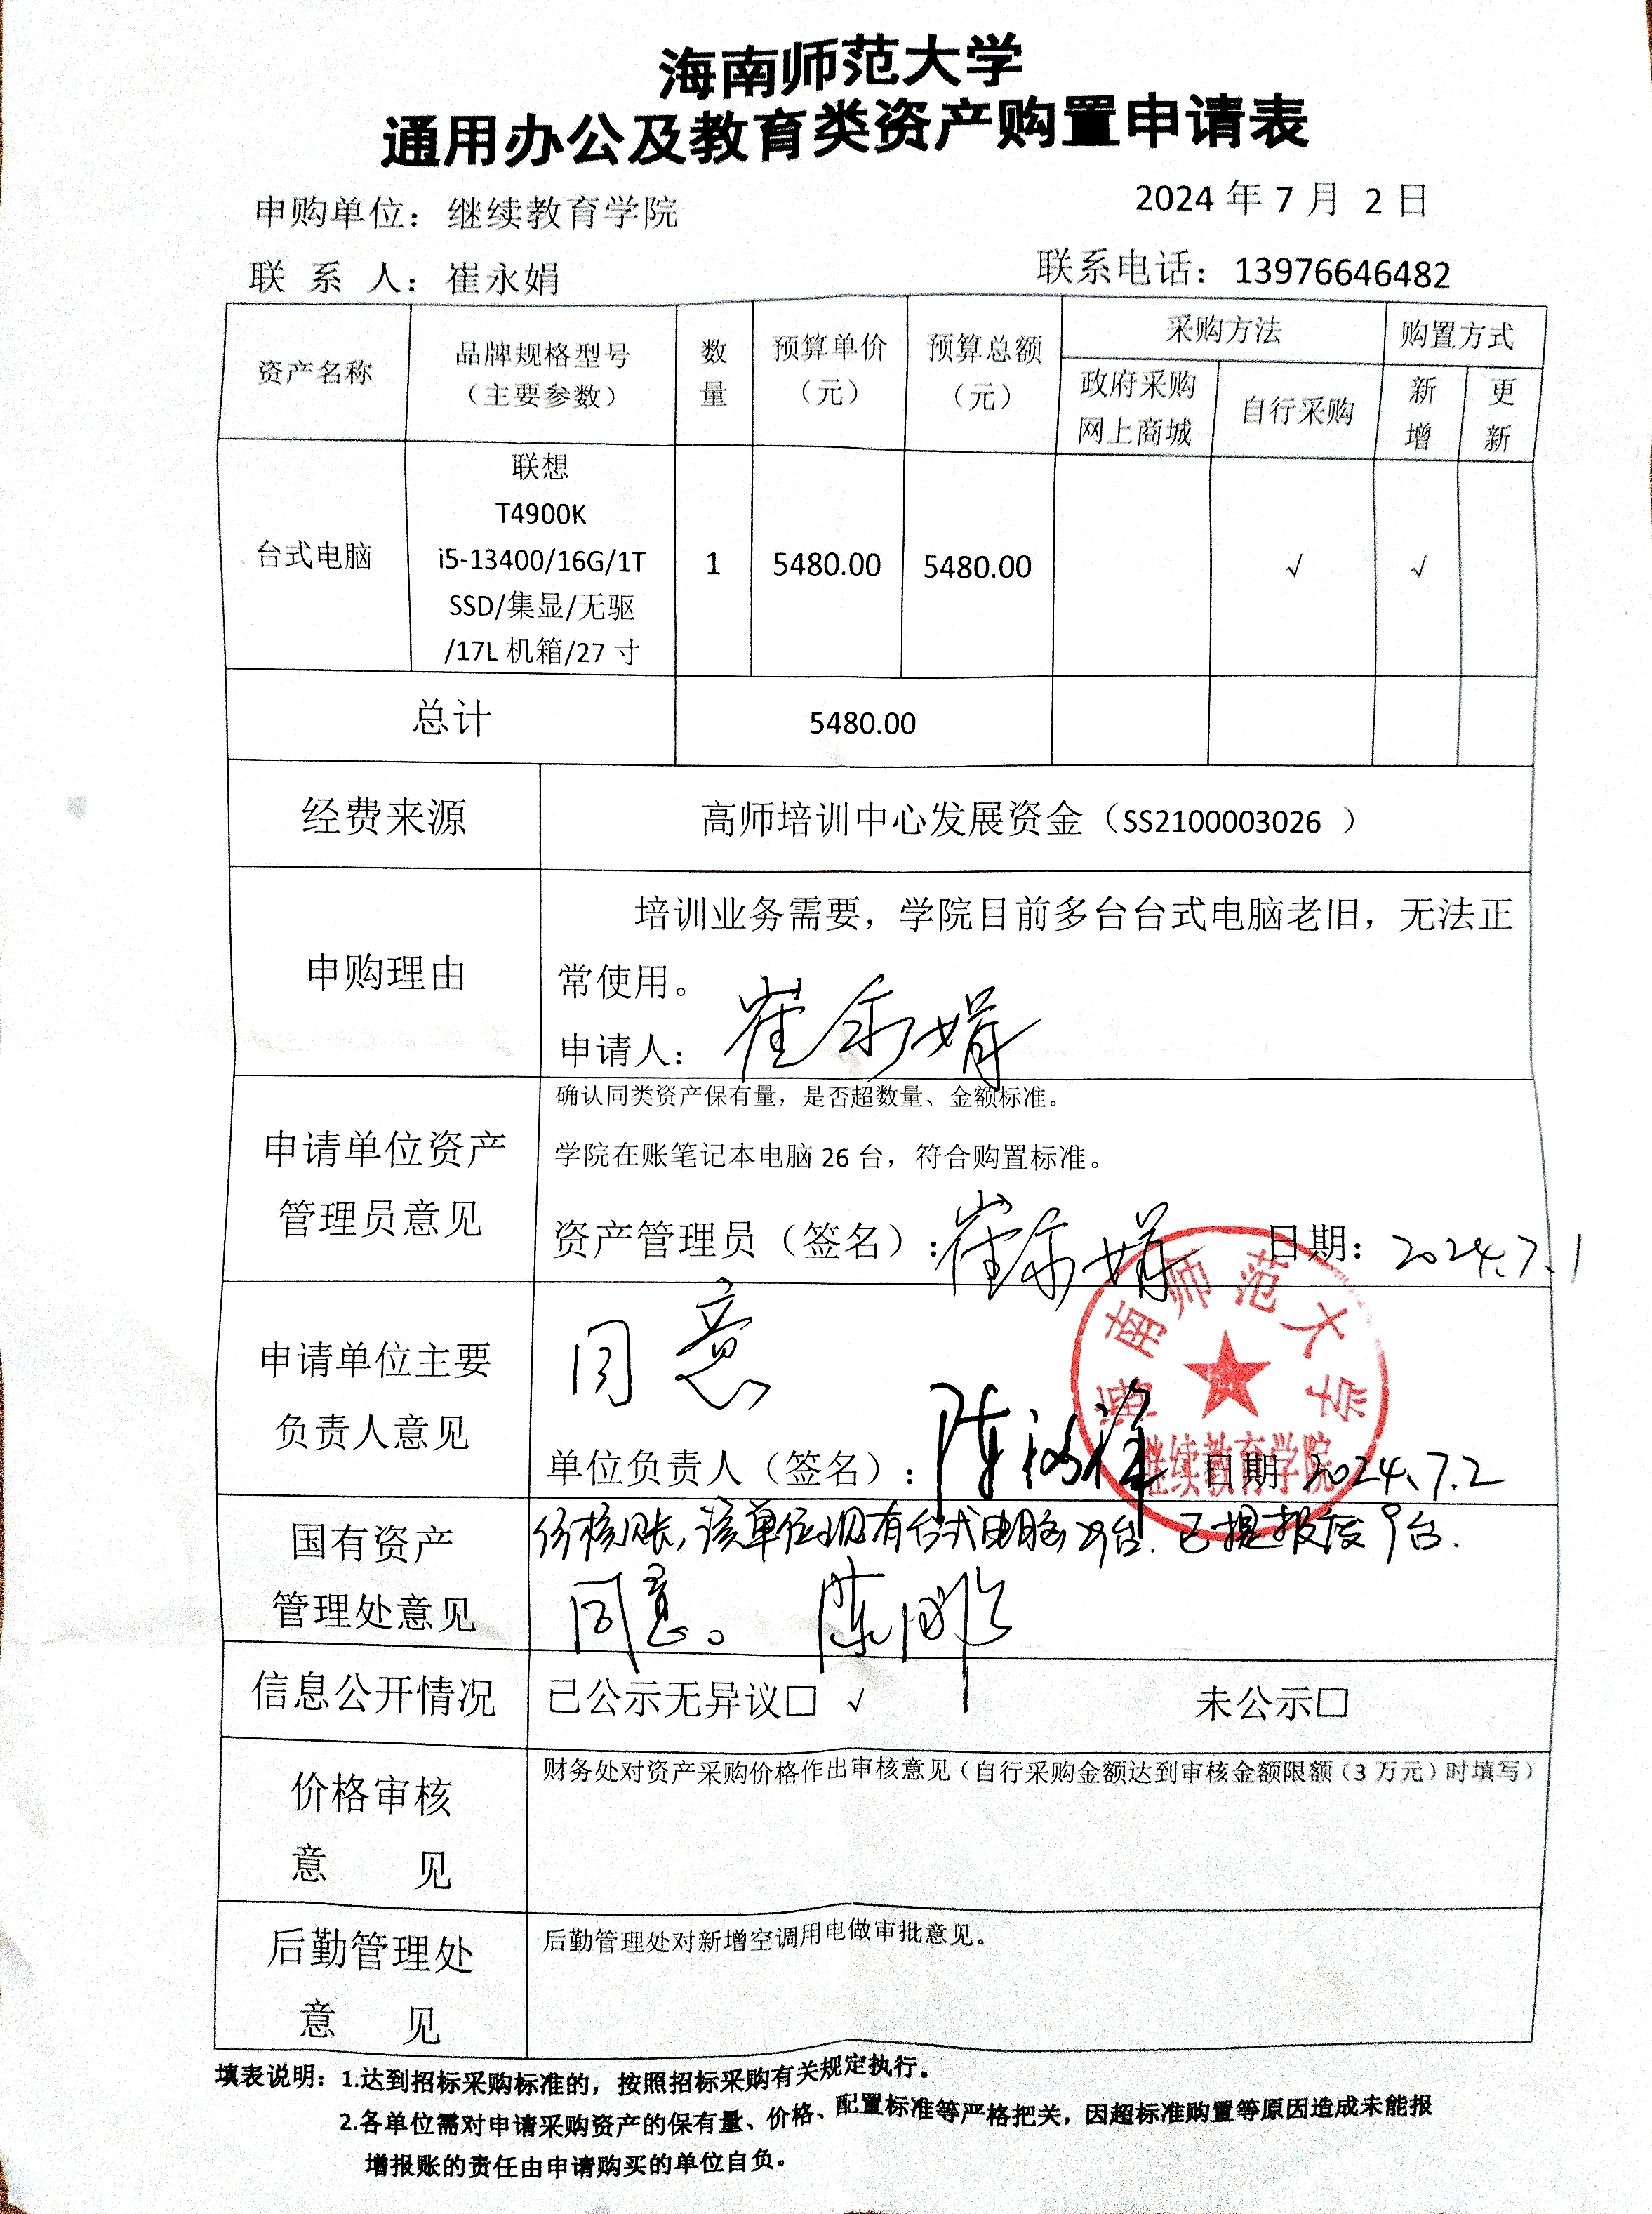 海南师范大学
通用办公及教育类资产购置申请表
申购单位：继续教育学院
2024 年 7 月 2 日
联 系 人：崔永娟
联系电话：13976646482
资产名称
品牌规格型号
（主要参数）
数
量
预算单价
（元）
预算总额
（元）
采购方法
购置方式
政府采购
网上商城
自行采购
新
增
更
新
台式电脑
联想
T4900K
i5-13400/16G/1T
SSD/集显/无驱
/17L 机箱/27 寸
1
5480.00
5480.00
√
√
总计
5480.00
经费来源
高师培训中心发展资金（SS2100003026 ）
申购理由
培训业务需要，学院目前多台台式电脑老旧，无法正
常使用。
申请人：崔永娟
申请单位资产
管理员意见
确认同类资产保有量，是否超数量、金额标准。
学院在账笔记本电脑 26 台，符合购置标准。
资产管理员（签名）：崔永娟 日期：2024.7.1
申请单位主要
负责人意见
同意
单位负责人（签名）：陈 日期 2024.7.2
海南师范大学
继续教育学院
国有资产
管理处意见
核账，该单位现有台式电脑 台.已提报废9台.
同意。 陈
信息公开情况
已公示无异议□ √
未公示□
价格审核
意 见
财务处对资产采购价格作出审核意见（自行采购金额达到审核金额限额（3 万元）时填写）
后勤管理处
意 见
后勤管理处对新增空调用电做审批意见。
填表说明：1.达到招标采购标准的，按照招标采购有关规定执行。
2.各单位需对申请采购资产的保有量、价格、配置标准等严格把关，因超标准购置等原因造成未能报
增报账的责任由申请购买的单位自负。